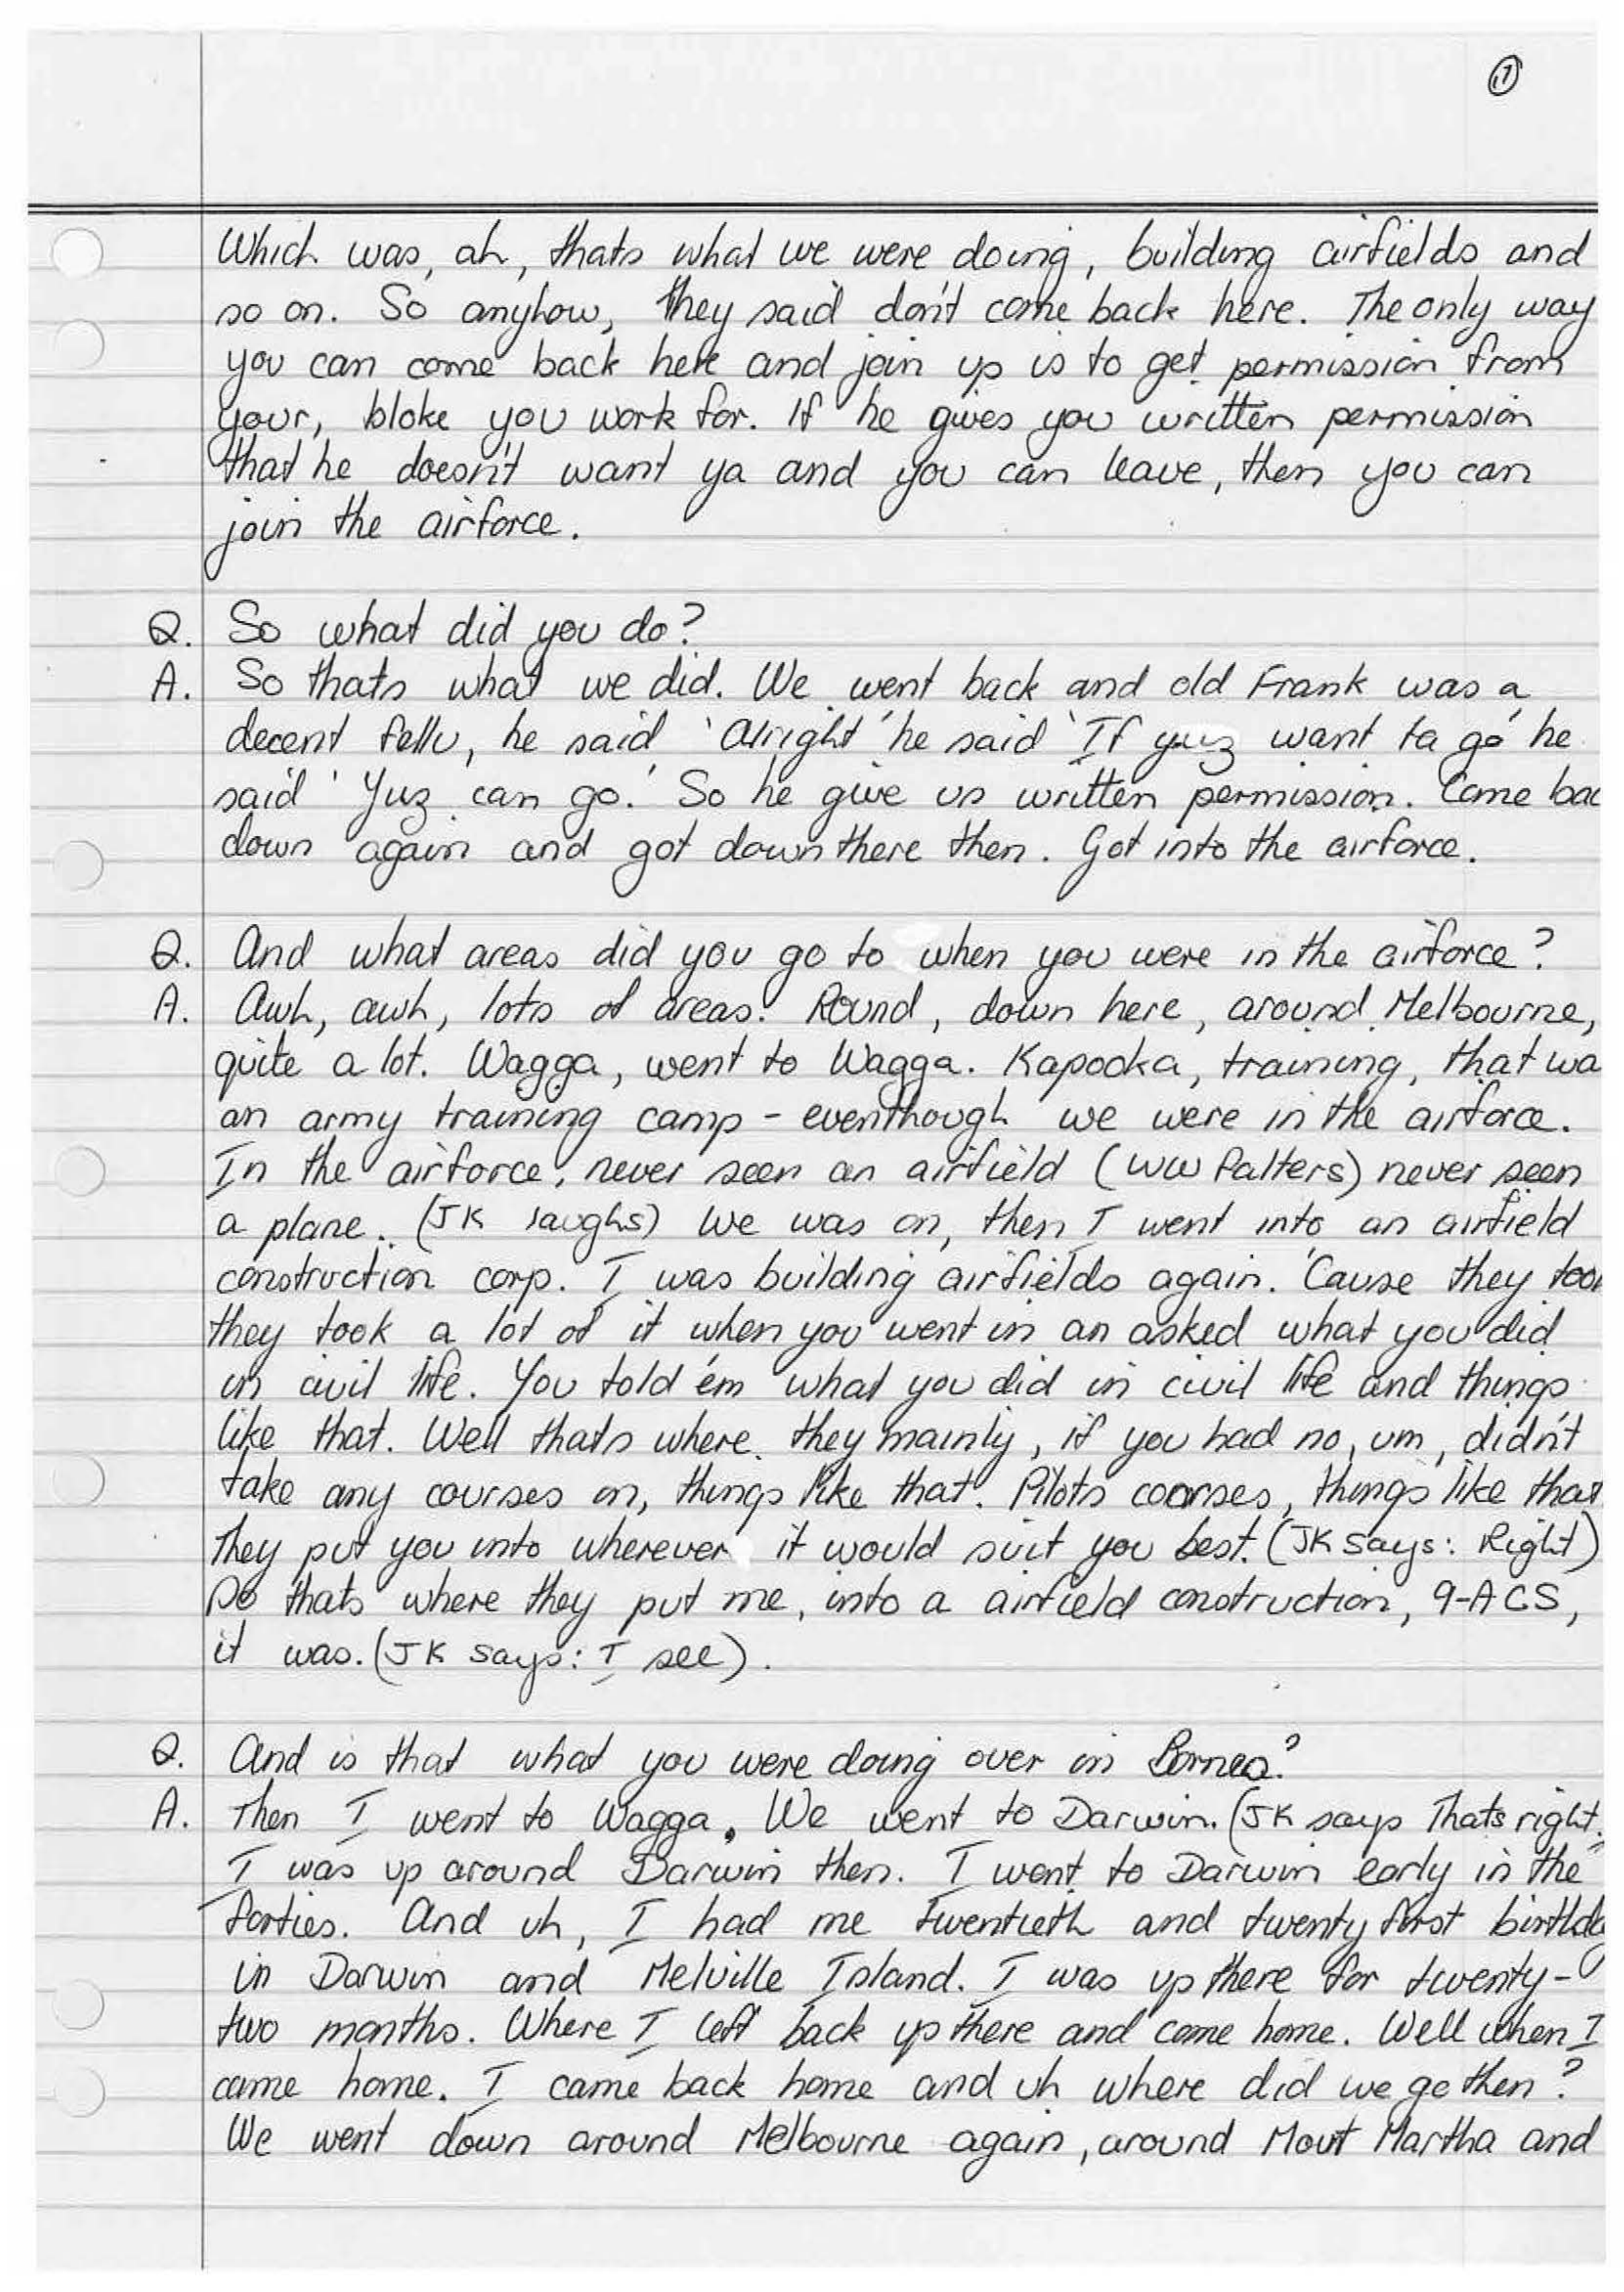 7
Which was, ah, thats what we were doing, building airfields and
so on. So anyhow, they said don't come back here. The only way
you can come back here and join up is to get permission from
your, bloke you work for. If he gives you written permission
that he doesn't want ya and you can leave, then you can
join the airforce.
Q. So what did you do?
A. So thats what we did. We went back and old Frank was a
decent fella, he said 'Alright' he said 'If yuz want ta go' he
said 'Yuz can go.' So he give us written permission. Come bac
down again and got down there then. Got into the airforce.
Q. And what areas did you go to when you were in the airforce?
A. Awh, awh, lots of areas. Round, down here, around Melbourne,
quite a lot. Wagga, went to Wagga. Kapooka, training, that wa
an army training camp - eventhough we were in the airforce.
In the airforce, never seen an airfield (WW falters) never seen
a plane. (JK laughs) We was on, then I went into an airfield
construction corp. I was building airfields again. 'Cause they too
they took a lot of it when you went in an asked what you did
in civil life. You told 'em what you did in civil life and things
like that. Well thats where they mainly, if you had no, um, didn't
take any courses on, things like that. Pilots courses, things like that
They put you into wherever it would suit you best. (JK says: Right)
So thats where they put me, into a airfield construction, 9-ACS,
it was. (JK says: I see).
Q. And is that what you were doing over in Borneo?
A. Then I went to Wagga. We went to Darwin. (JK says Thats right.)
I was up around Darwin then. I went to Darwin early in the
forties. And uh, I had me twentieth and twenty first birthda
in Darwin and Melville Island. I was up there for twenty-
two months. Where I left back up there and come home. Well when I
came home. I came back home and uh where did we go then?
We went down around Melbourne again, around Mout Martha and